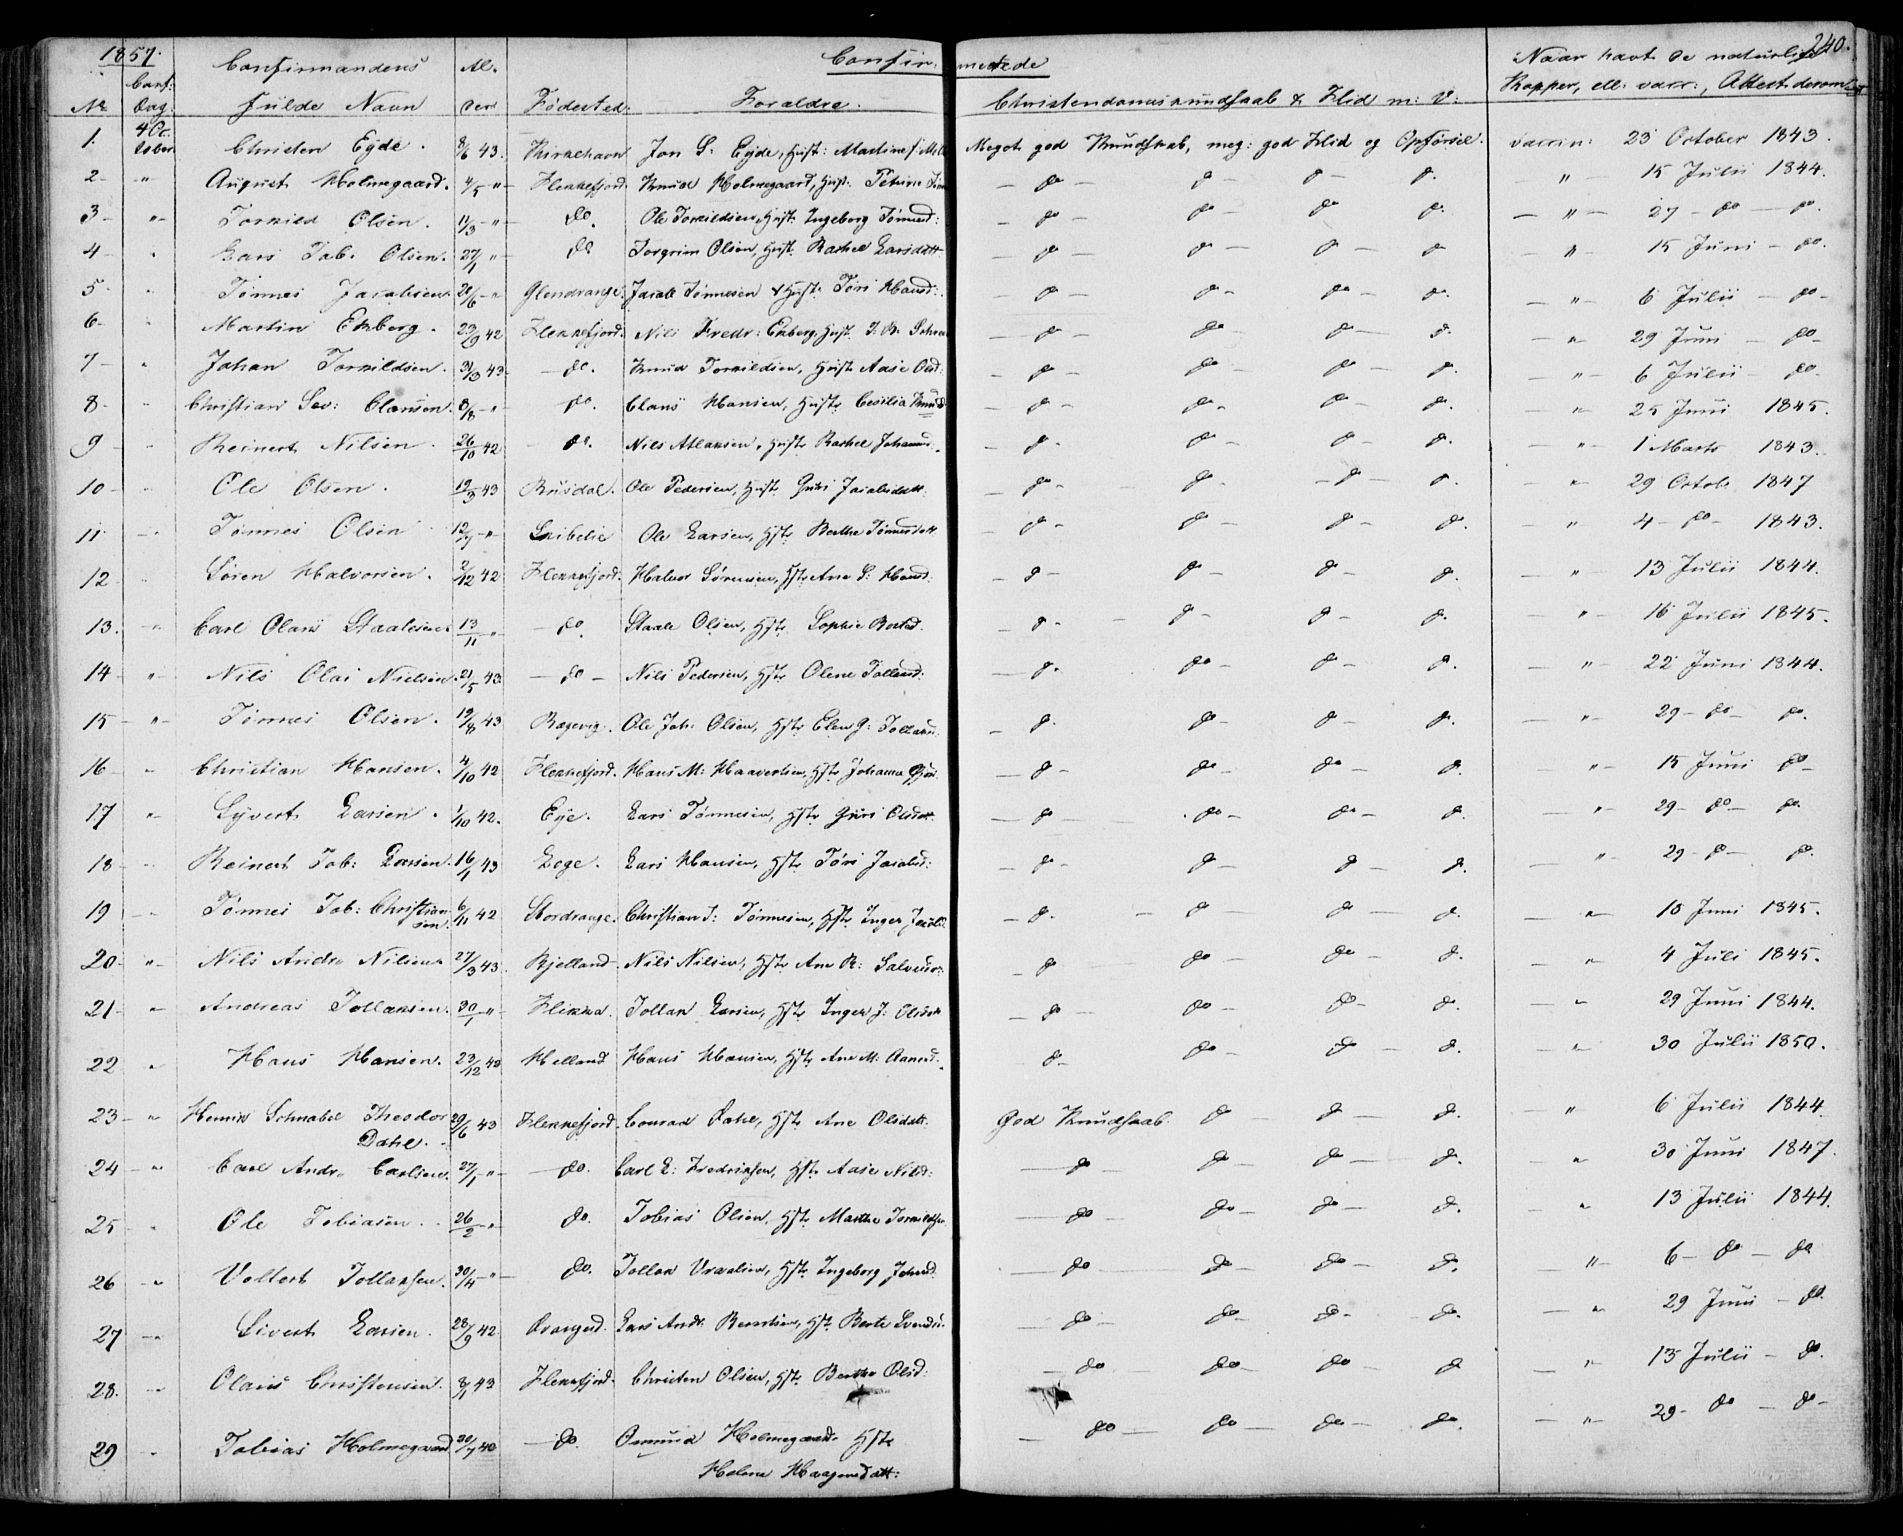 1857. Confirmerede 240.
No Conf: Dag: Confirmandens fulde Navn Al- der Fødested: Forældre. Christendomskundskab & Flid m: v: Naar havt de naturlige Kopper, ell: vacc:, Attest derom
1. 4 Octobr Christen Eyde. 8/6 43. Kirkehavn Jon S. Eyde, Hust: Martine Meget god Kundskab, meg: god Flid og Opførsel. vaccin: 23 October 1843.
2 - " August Holmegaard. 4/5 " Flekkefjord. Knud Holmegaard, Hust: Petrine - do - do - do - do. " 15 Julii 1844.
3 - " Torkild Olsen. 11/3 - " do. Ole Torkildsen, Hust: Ingeborg Tønnesd: - do - do - do do. - " - 27 - do - do.
4 - " Lars Tob. Olsen. 27/1 " do Torgrim Olsen, Hust: Rachel Larsdatt - do - do - do - do - " - 15 Juni - do.
5 " Tønnes Jacobsen 20/6 - " Glendrange. Jacob Tønnesen & Hust: Tøri Hansd: - do - do - do - do. - " - 6 Julii - do -
6 - " Martin Ekberg. 23/9 42 Flekkefjord. Nils Fredr: Ekberg, Hust: - do - do - do - do. - " 29 Juni - do -
7 - " Johan Torkildsen. 31/3 43 - do. Knud Torkildsen, Hust: Aase Olsd: - do - do - do - do. - " - 6 Julii - do -
8 - " Christian Sev: Clausen. 8/8 - " - do. Claus Hansen, Hust: Cesilia Knud - do - do - do - do. - " 25 Juni 1845.
9 - " Reinert Nilsen. 26/10 42 - do. Nils Atlaksen, Hust: Rachel Johannes - do - do - do - do. - " - 1 Marts 1843.
10 - " Ole Olsen. 19/3 43 Rusdal. Ole Pedersen, Hust: Guri Jacobsdatt: - do - do - do - do. - " 29 Octob. 1847
11 - " Tønnes Olsen 12/7 - " - Ole Larsen, Hstr: Berthe Tønnesdatt - do - do - do - do. - " 4 - do - 1843.
12 - " Søren Halvorsen. 2/12 42 Flekkefjord. Halvor Sørensen, Hstr: Ane S: Hansd: - do - do - do - do. - " 13 Julii 1844.
13. - " Carl Olaus Staalesen 13/11 " - do. Staale Olsen, Hstr: Sophie - do - do - do - do. - " - 16 Julii 1845.
14 - " Nils Olai Nielsen. 21/5 43. - do - Nils Pedersen, Hstr: Olene Tollesd: - do - do - do - do. - " - 22 Juni 1844.
15 - " Tønnes Olsen. 19/8 43 Rægevig. Ole Joh: Olsen, Hstr: Elen G: - do. do - do - do. - " - 29 - do - do.
16 - " Christian Hansen. 4/10 42 Flekkefjord. Hans M: Haavertsen, Hstr: Johanna - do - do - do - do. " - 15 Juni do -
17 " Syvert Larsen. 1/10 42. Eye. Lars Tønnesen, Hstr: Guri Olsdatt. - do - do - do - do. - " - 29 - do - do.
18 - " Reinert Tob: Larsen. 16/1 43 Loge. Lars Hansen, Hstr: Tøri Jacobsd: - do - do - do - do. - " - 29 - do - do.
19 - " Tønnes Tob: Christiansen. 6/11 42 Stordrange. Christian T: Tønnesen, Hstr: Inger - do. - do - do - do. - " 10 Juni 1845.
20 - " Nils Andr. Nilsen 27/3 43. Kjelland Nils Nilsen, Hstr: Ane R: - do do - do - do. - " 4 Juli 1845.
21 - " Andreas Tollaksen. 30/1 - " - Flikka. Tollak Larsen, Hstr: Inger J: Olsdatt - do - do - do - do. - " 29 Juni 1844.
22 " Hans Hansen. 23/12 40 Helland Hans Hansen, Hstr: Ane M: - do - do - do - do. - " 30 Julii 1850.
23 - " Henrik Schnabel Theodor Dahl. 29/6 43 Flekkefjord. Conrad Dahl, Hstr: Ane Olsdatt: God Kundskab. do - do - do. - " 6 Julii 1844.
24 - " Carl Andr. Carlsen. 27/1 - " - - do. Carl E: Fredriksen, Hstr: Aase Nilsd: - do do - do - do. - " 30 Juni 1847.
25 - " Ole Tobiasen. 26/2 - " do. Tobias Olsen, Hstr: Marthe - do - do - do - do. - " 13 Julii 1844.
26 - " Vollert Tollaksen. 30/4 - " - do. Tollak, Hstr: Ingeborg - do - do - do - do. - " - 6 - do - do
27 - " Sivert Larsen. 28/9 42 Drangeid. Lars Andr. Berntsen, Hstr: Berte - do - do - do - do. - " 29 Juni - do.
28. - " Olaus Christensen. 8/1 43 Flekkefjord. Christen Olsen, Hstr: Berthe Olsd: - do do - do - do - " 13 Julii - do.
29 " Tobias Holmegaard 20/7 40 - do. Omund Holmegaard, Hstr: - do - do - do - do. - " - 29 - do - do -
Helene Haagensdatt: